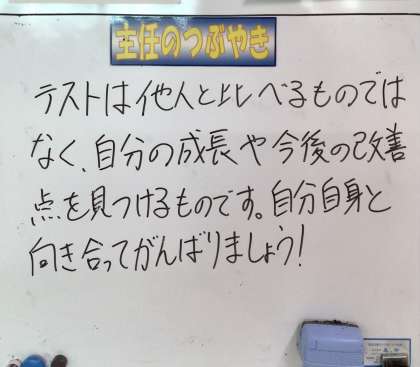 主任のつぶやき
テストは他人と比べるものでは
なく、自分の成長や今後の改善
点を見つけるものです。自分自身と
向き合ってがんばりましょう!